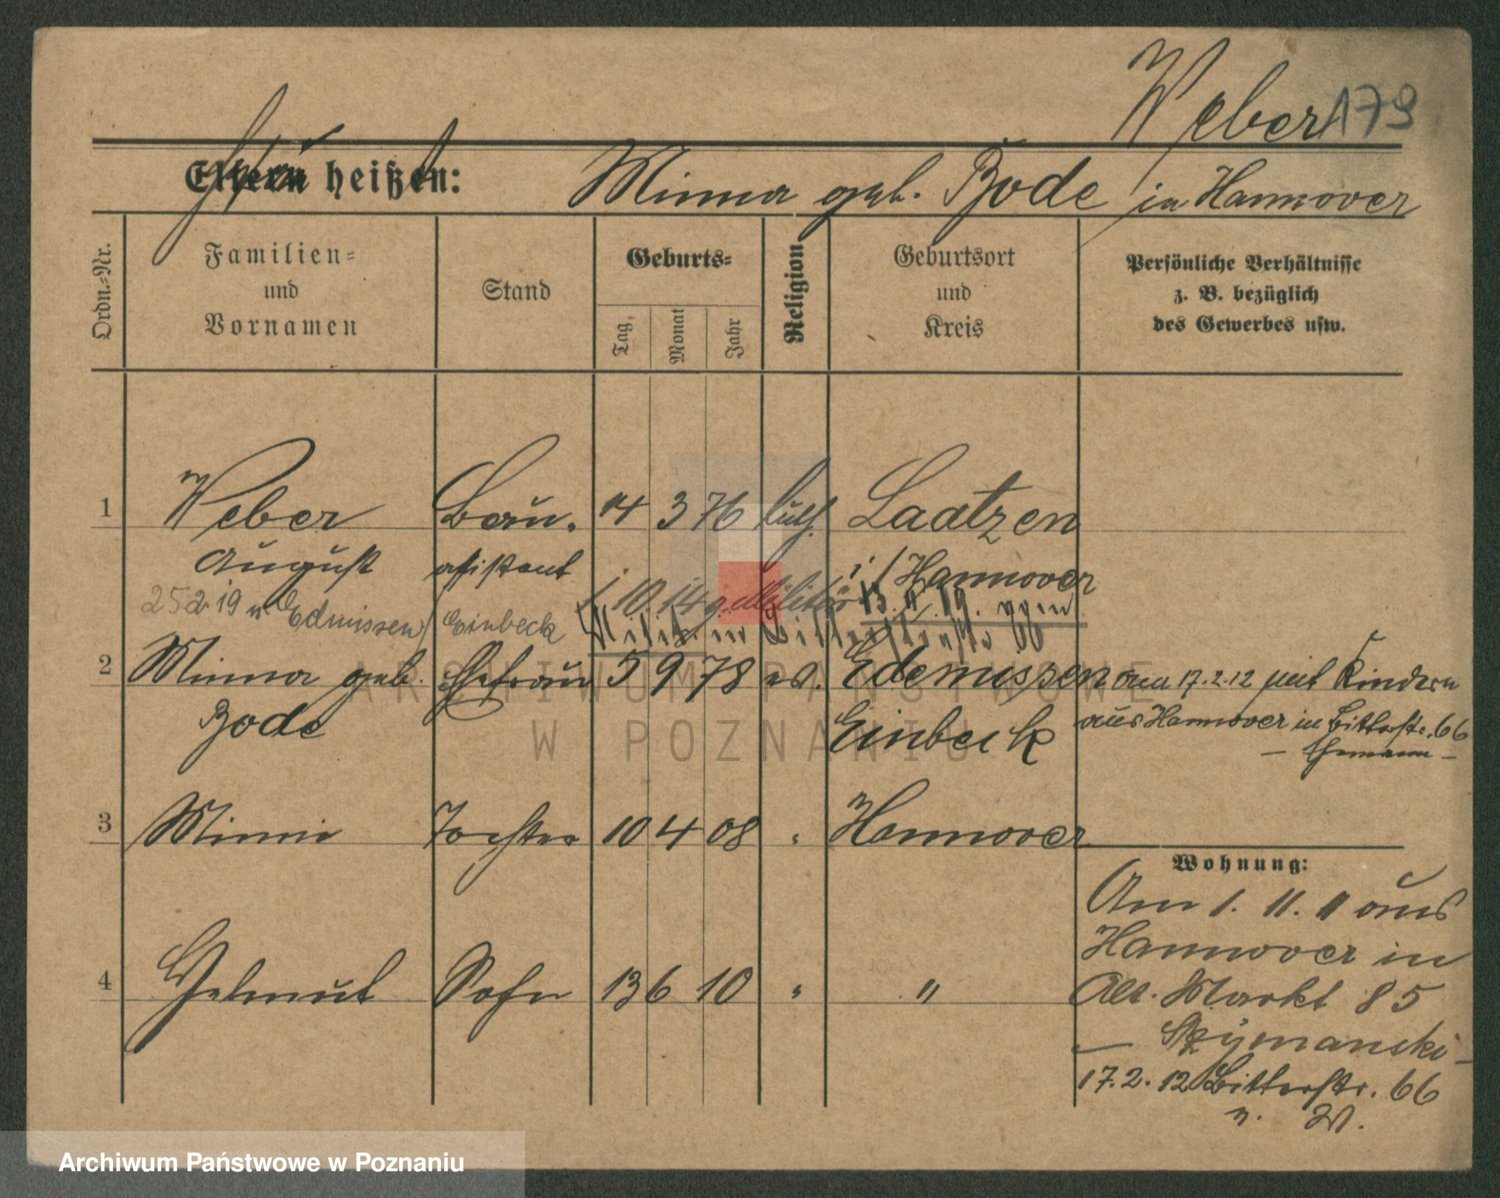 Weber 179
Eltern heißen: Minna geb. Bode in Hannover
Ordn.-Nr.
Familien-
und
Vornamen
Stand
Geburts-
Tag,
Monat
Jahr
Religion
Geburtsort
und
Kreis
Persönliche Verhältnisse
z. B. bezüglich
des Gewerbes usw.
1 Weber Bau- 4 3 76 luth. Laatzen
August assistent i/Hannover
25 2 19 n. Edmissen Einbeck
10. 14 z. Militär 15. 11. 19.
2 Minna geb. Ehefrau 5 9 78 ev. Edemissen am 17.2.12 mit Kindern
Bode Einbeck aus Hannover in Bitterstr. 66
— Ehemann —
3 Minna Tochter 10 4 08 " Hannover
Wohnung:
Am 1. 11. 11 aus
Hannover in
4 Helmut Sohn 13 6 10 " "
Alt. Markt 85
— Szymanski —
17.2.12 Bitterstr. 66
n. W.
ARCHIWUM PAŃSTWOWE
W POZNANIU
Archiwum Państwowe w Poznaniu